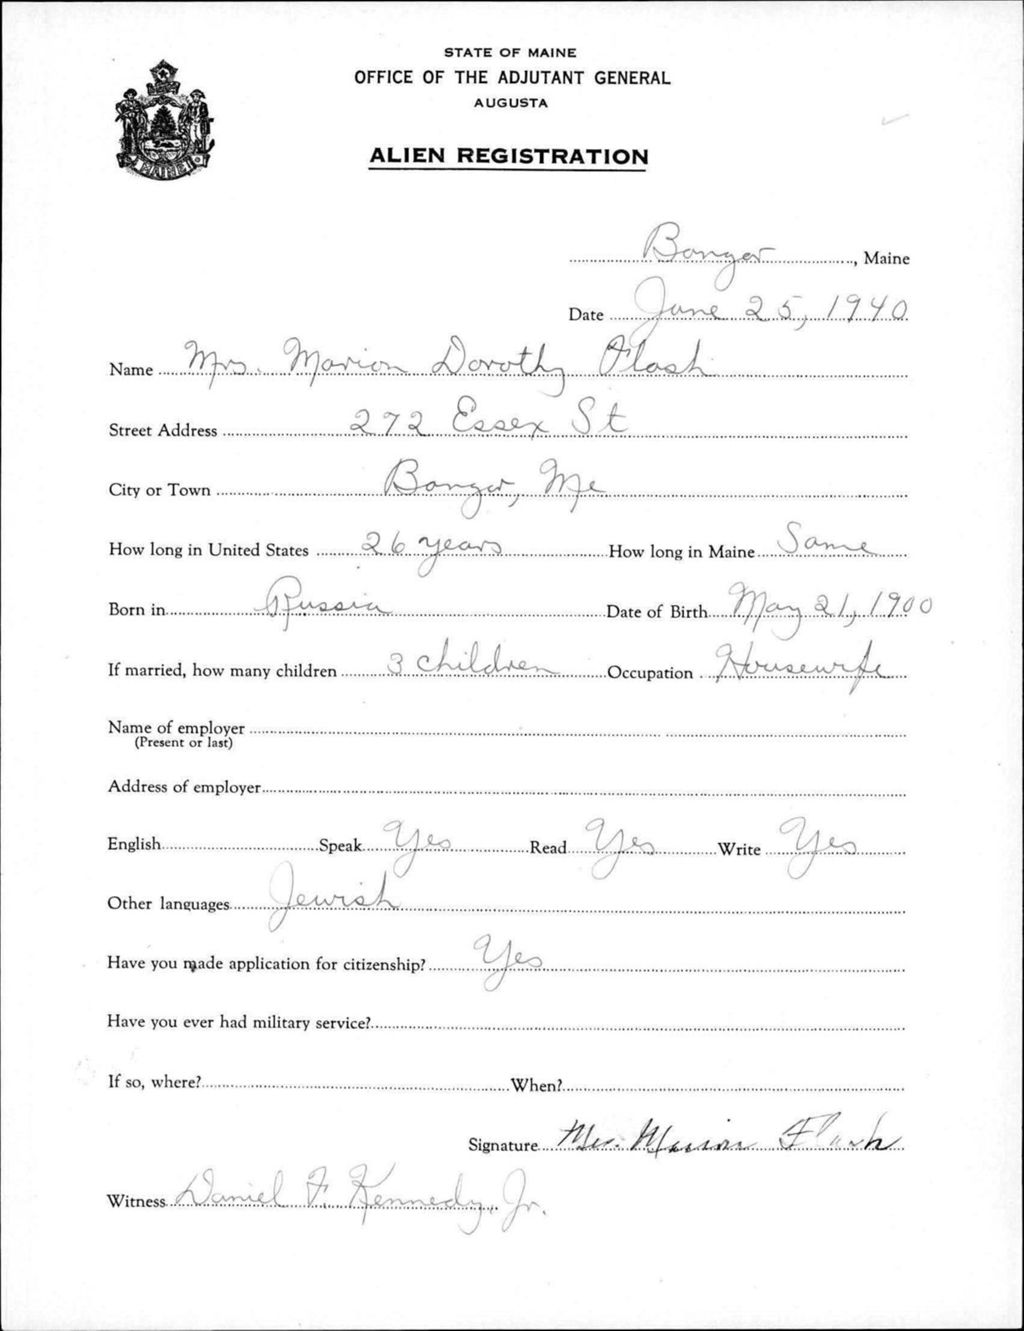 STATE OF MAINE
OFFICE OF THE ADJUTANT GENERAL
AUGUSTA
ALIEN REGISTRATION
MAINE
Bangor, Maine
Date June 25, 1940
Name Mrs. Marion Dorothy Flash
Street Address 272 Essex St
City or Town Bangor, Me
How long in United States 26 years How long in Maine Same
Born in Russia Date of Birth May 21, 1900
If married, how many children 3 children Occupation Housewife
Name of employer
(Present or last)
Address of employer
English Speak Yes Read Yes Write Yes
Other languages Jewish
Have you made application for citizenship? Yes
Have you ever had military service?
If so, where? When?
Signature Mrs. Marion Flash
Witness Daniel F. Kennedy, Jr.